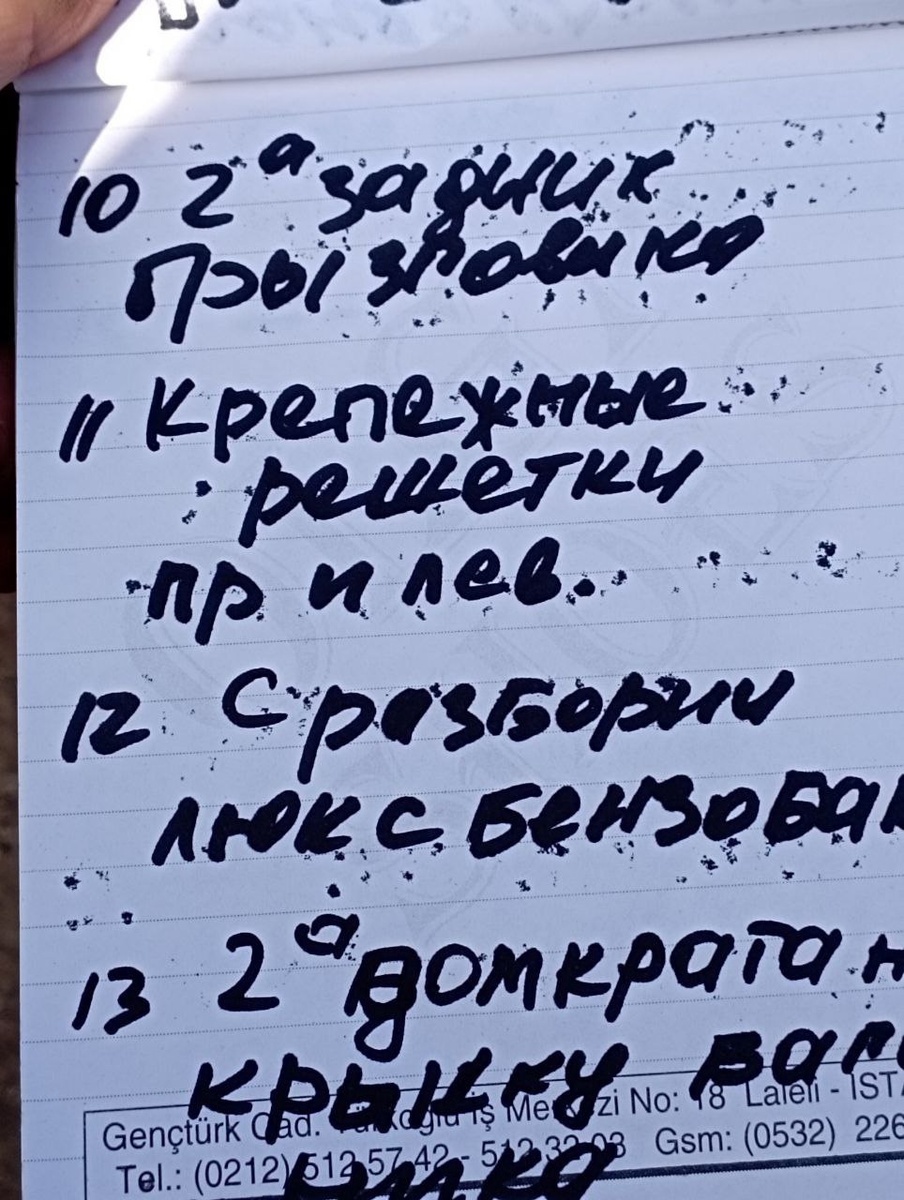 10 2а задних
брызговика
11 Крепежные
решетки
пр и лев.
12 С разборки
люк с бензобак
13 2а домкрата н
крышку
Gençtürk Cad. İş Merkezi No: 18 Laleli - İST
Tel.: (0212) 512 57 42 - 512 32 03 Gsm: (0532) 226